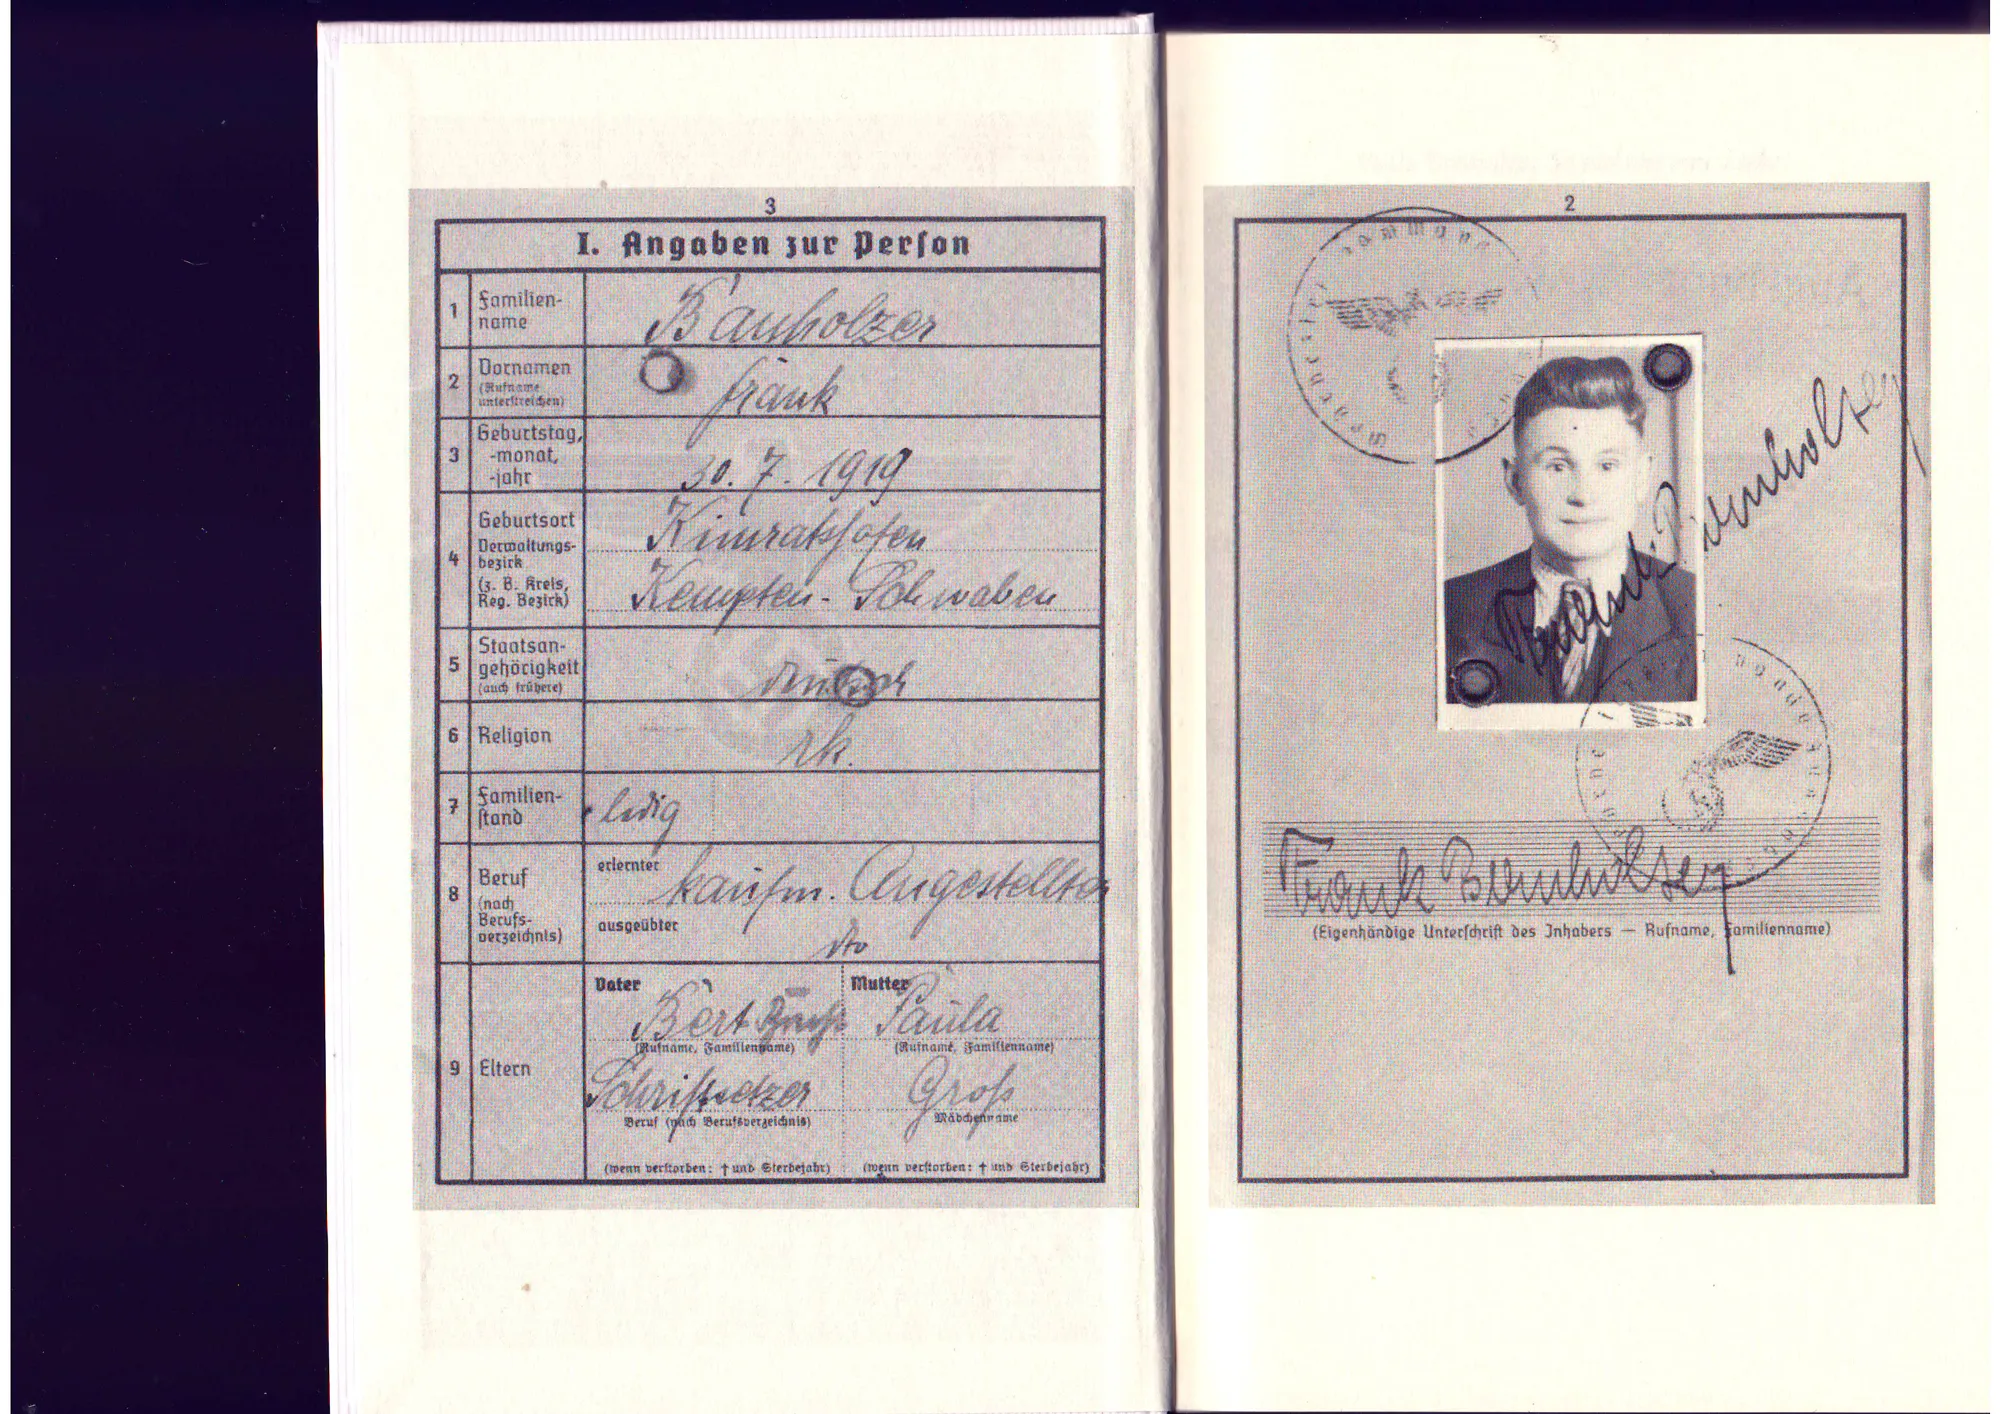 3
I. Angaben zur Person
1 Familien-
name
Banholzer
2 Vornamen
(Rufname
unterstreichen)
Frank
3 Geburtstag,
-monat,
-jahr
30. 7. 1919
4 Geburtsort
Verwaltungs-
bezirk
(z. B. Kreis,
Reg. Bezirk)
Kimratshofen
Kempten - Schwaben
5 Staatsan-
gehörigkeit
(auch frühere)
deutsch
6 Religion
rk.
7 Familien-
stand
ledig
8 Beruf
(nach
Berufs-
verzeichnis)
erlernter
kaufm. Angestellter
ausgeübter
dto
9 Eltern
Vater
Bert
(Rufname, Familienname)
Schriftsetzer
Beruf (nach Berufsverzeichnis)
(wenn verstorben: † und Sterbejahr)
Mutter
Paula
(Rufname, Familienname)
Groß
Mädchenname
(wenn verstorben: † und Sterbejahr)
2
Frank Banholzer
Frank Banholzer
(Eigenhändige Unterschrift des Inhabers — Rufname, Familienname)